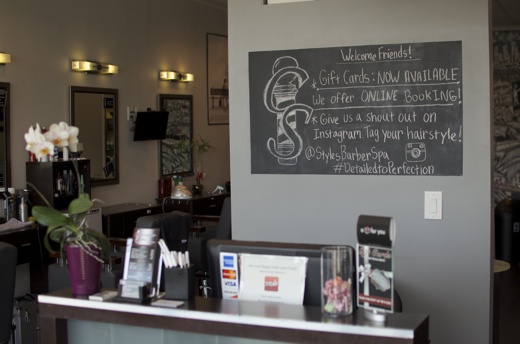 Welcome Friends!
* Gift Cards: NOW AVAILABLE
We offer ONLINE BOOKING!
* Give us a shout out on
Instagram Tag your hairstyle!
@StylesBarberSpa
#DetailedtoPerfection
for you
VISA